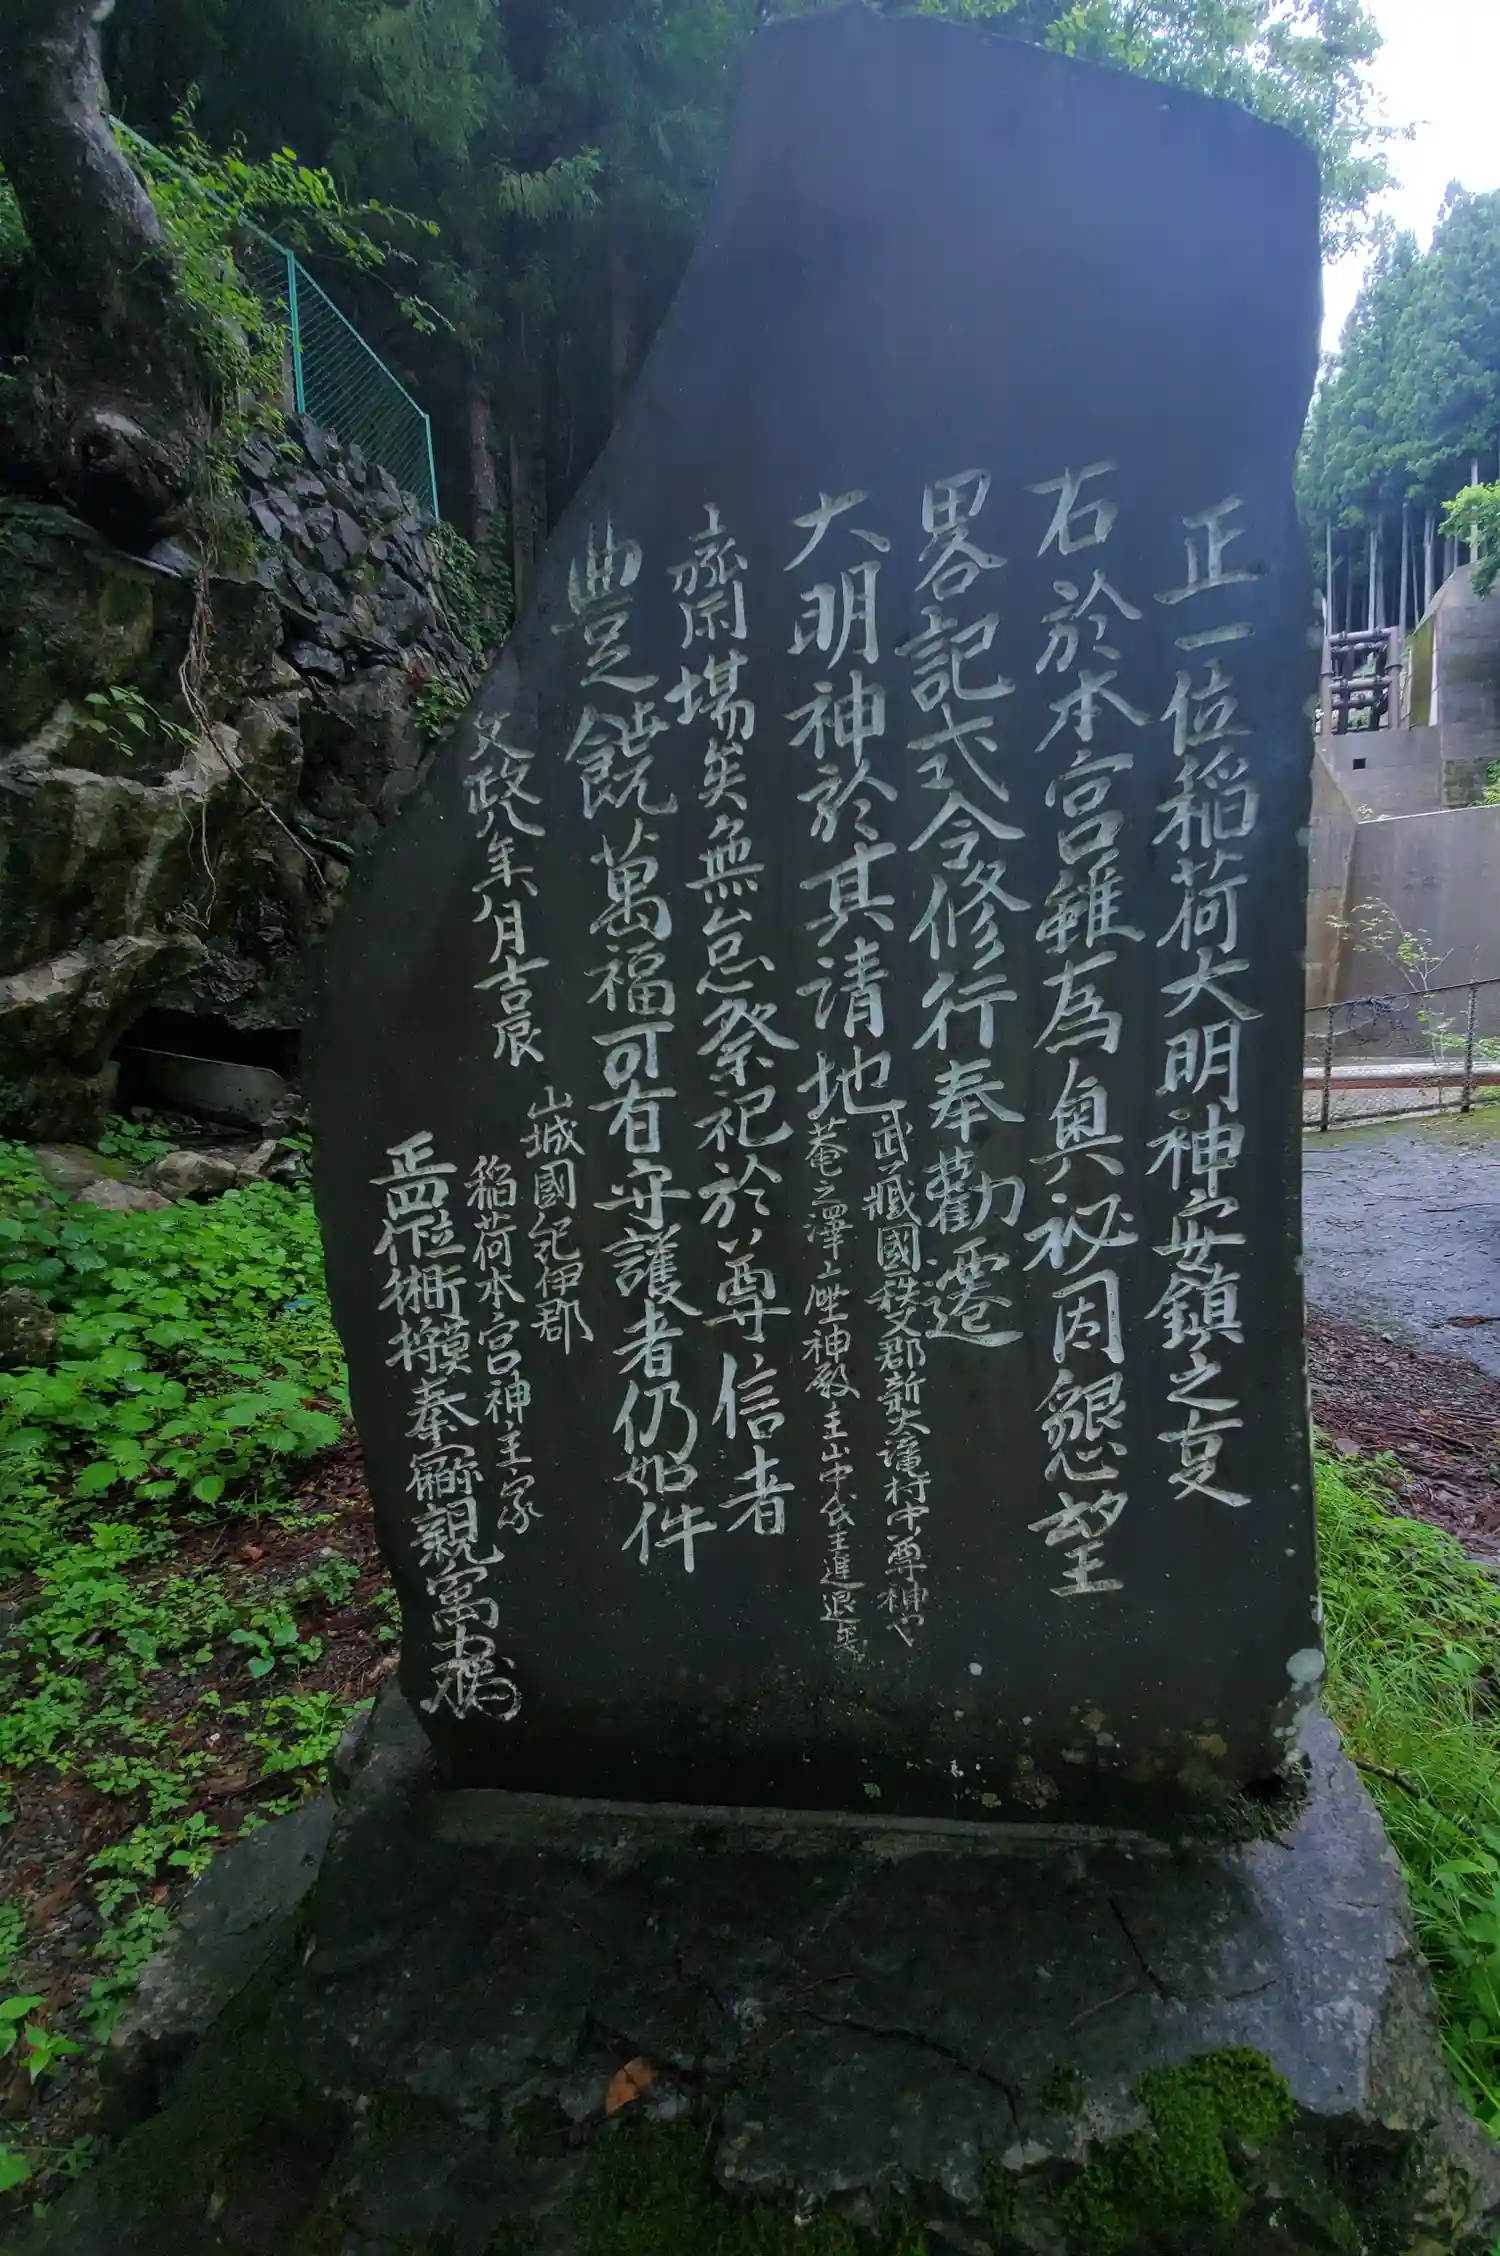 正一位稲荷大明神安鎮之支
右於本宮雖為奥祕因懇望
畧記式令修行奉勸遷
大明神於其請地
武藏國秩父郡新大滝村中尊神や
菴之澤ニ座神殿主山中氏主進退
齋場矣無怠祭祀於尊信者
豊饒萬福可有守護者仍如件
文政八年八月吉辰
山城國紀伊郡
稲荷本宮神主家
正四位衛 奉 親寓